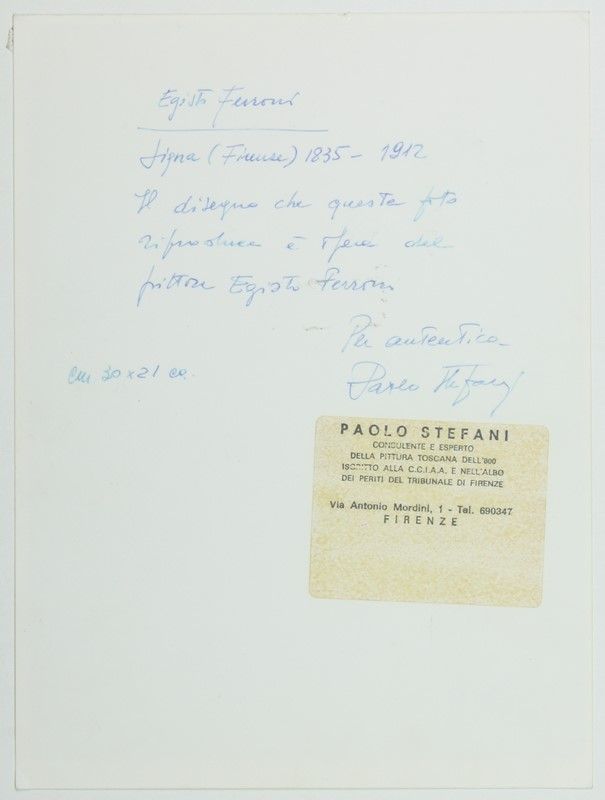 Egisto Ferroni
Signa (Firenze) 1835 - 1912
Il disegno che questa foto
riproduce è opera del
pittore Egisto Ferroni
Per autentica
Paolo Stefani
cm 30 x 21 ca.
PAOLO STEFANI
CONSULENTE E ESPERTO
DELLA PITTURA TOSCANA DELL'800
ISCRITTO ALLA C.C.I.A.A. E NELL'ALBO
DEI PERITI DEL TRIBUNALE DI FIRENZE
Via Antonio Mordini, 1 - Tel. 690347
FIRENZE